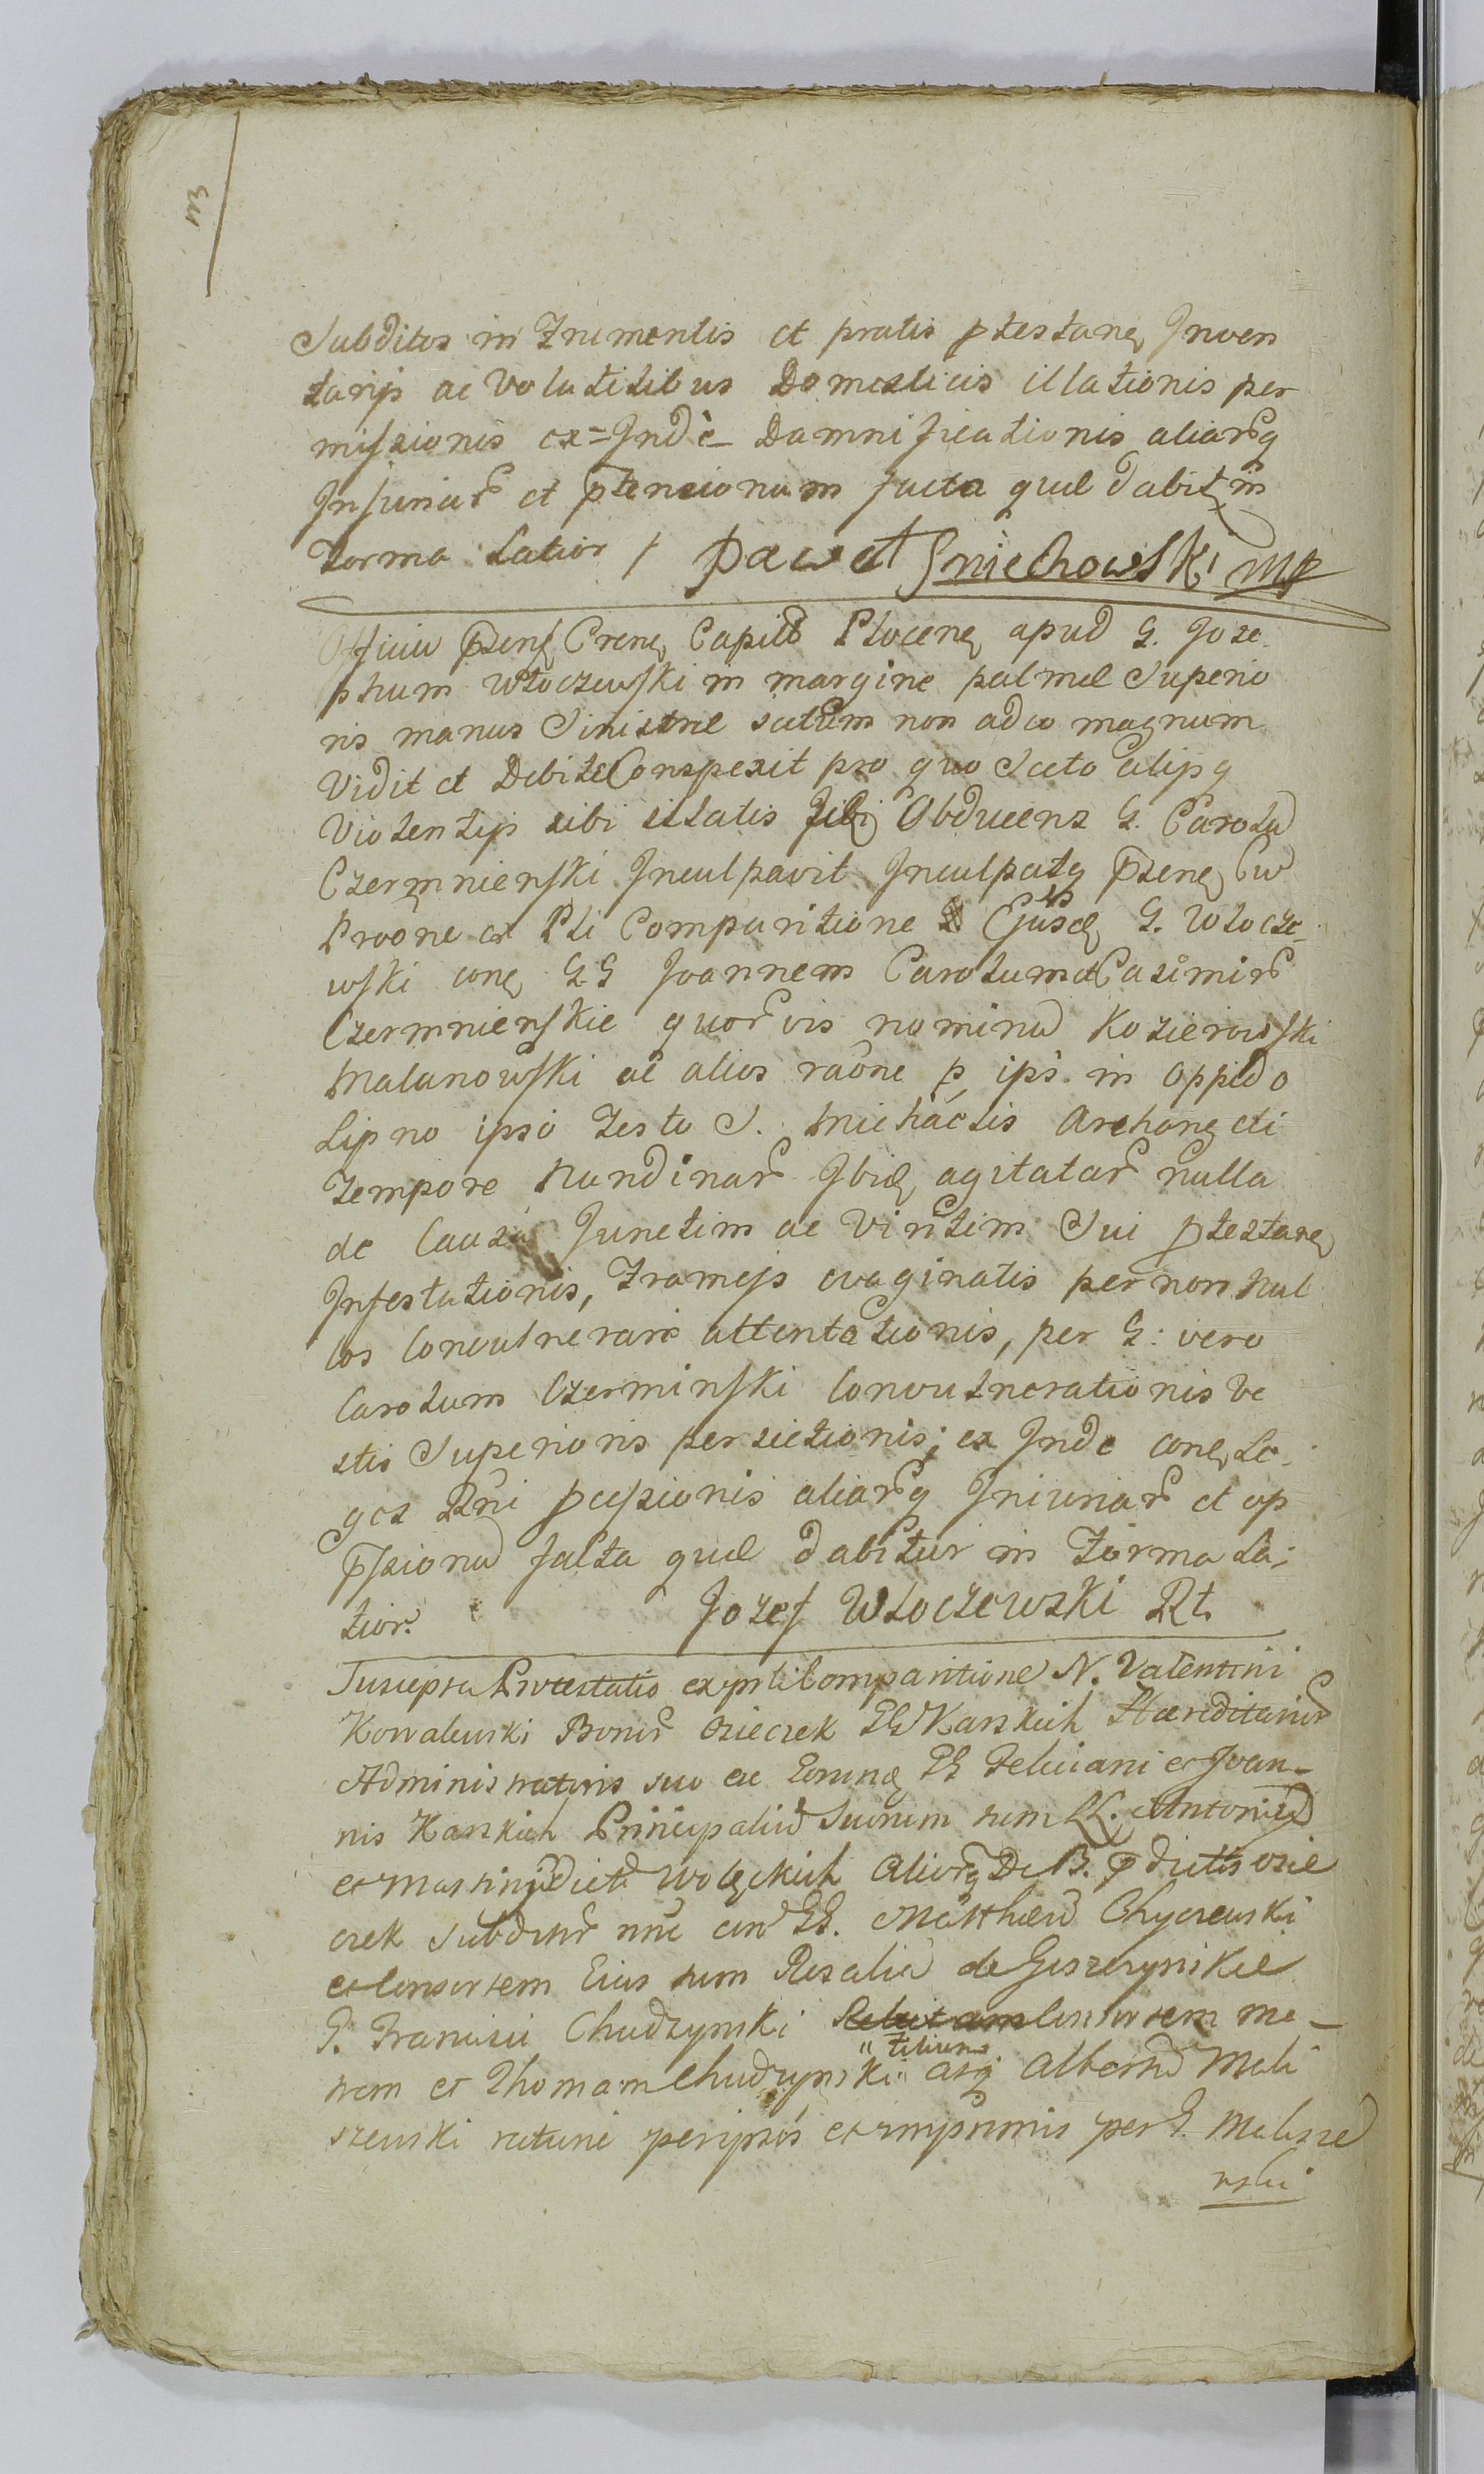 Subditos in Frumentis et pratis ptestane Inven
tarijs ac Volatilibus Domesticis illationis per
missionis ex=Indè Damnificationis aliarq
Injuriar et ptensionum facta quæ dabit in
Forma Latior / Paweł Śniechowski mp
Officiu pzens Crene Capitl Plocene apud G. Joze
phum Włoczewski in margine palmæ Superio
ris manus Sinistræ ictum non adeo magnum
Vidit et Debite Conspexit pro quo Icto alijsq
Violentijs sibi illatis Obducens G. Carolu
Czermnienski Inculpavit Inculpatq pzene
Proone ex Pli Comparitione Ejusd G. Włocze
wski cone G.G Joannem Carolum et Casimir
Czermnienskie quorvis nominu Kozierowski
Malanowski ac alios raone p ips. in Oppido
Lipno ipso Festo S. Michaelis Archangeli
Tempore Nundinar Ibid agitatar nulla
de Causa Junctim ac Viritim Sui ptestane
Infestationis, Frameis evaginatis per non nul
los Convulnerare attentationis, per G: vero
Carolum Czerminski Convulnerationis Ve
stis Superioris persictionis; ex Inde cone Le
ges Rni pcussionis aliarq Iniuriar et op
pssionu facta quæ dabitur in Forma La;
tior. Jozef Włoczewski Rt.
Suscepta Protestatio ex pnli Comparitione N. Valentini
Kowalewski Bonor Osieczek GG Karskich Hæreditarior
Administratoris suo ac Eorund GG Feliciani et Joan-
nis Karskich Principaliu Suorum tum LL. Antonij
et Martini dictor Wolęckich aliorq De B. pdictis osie
czek Subditor nne con GG. Matthæu Chyczewski
et Consortem Eius tum Rosalia de Goszczynskie
G. Francisci Chudzynski Consortem ma-
trem et Thomam Chudzynski " filium " atq Albertu Mali
szewski ratione per ipsos et inprimis per G. Malisze
wski